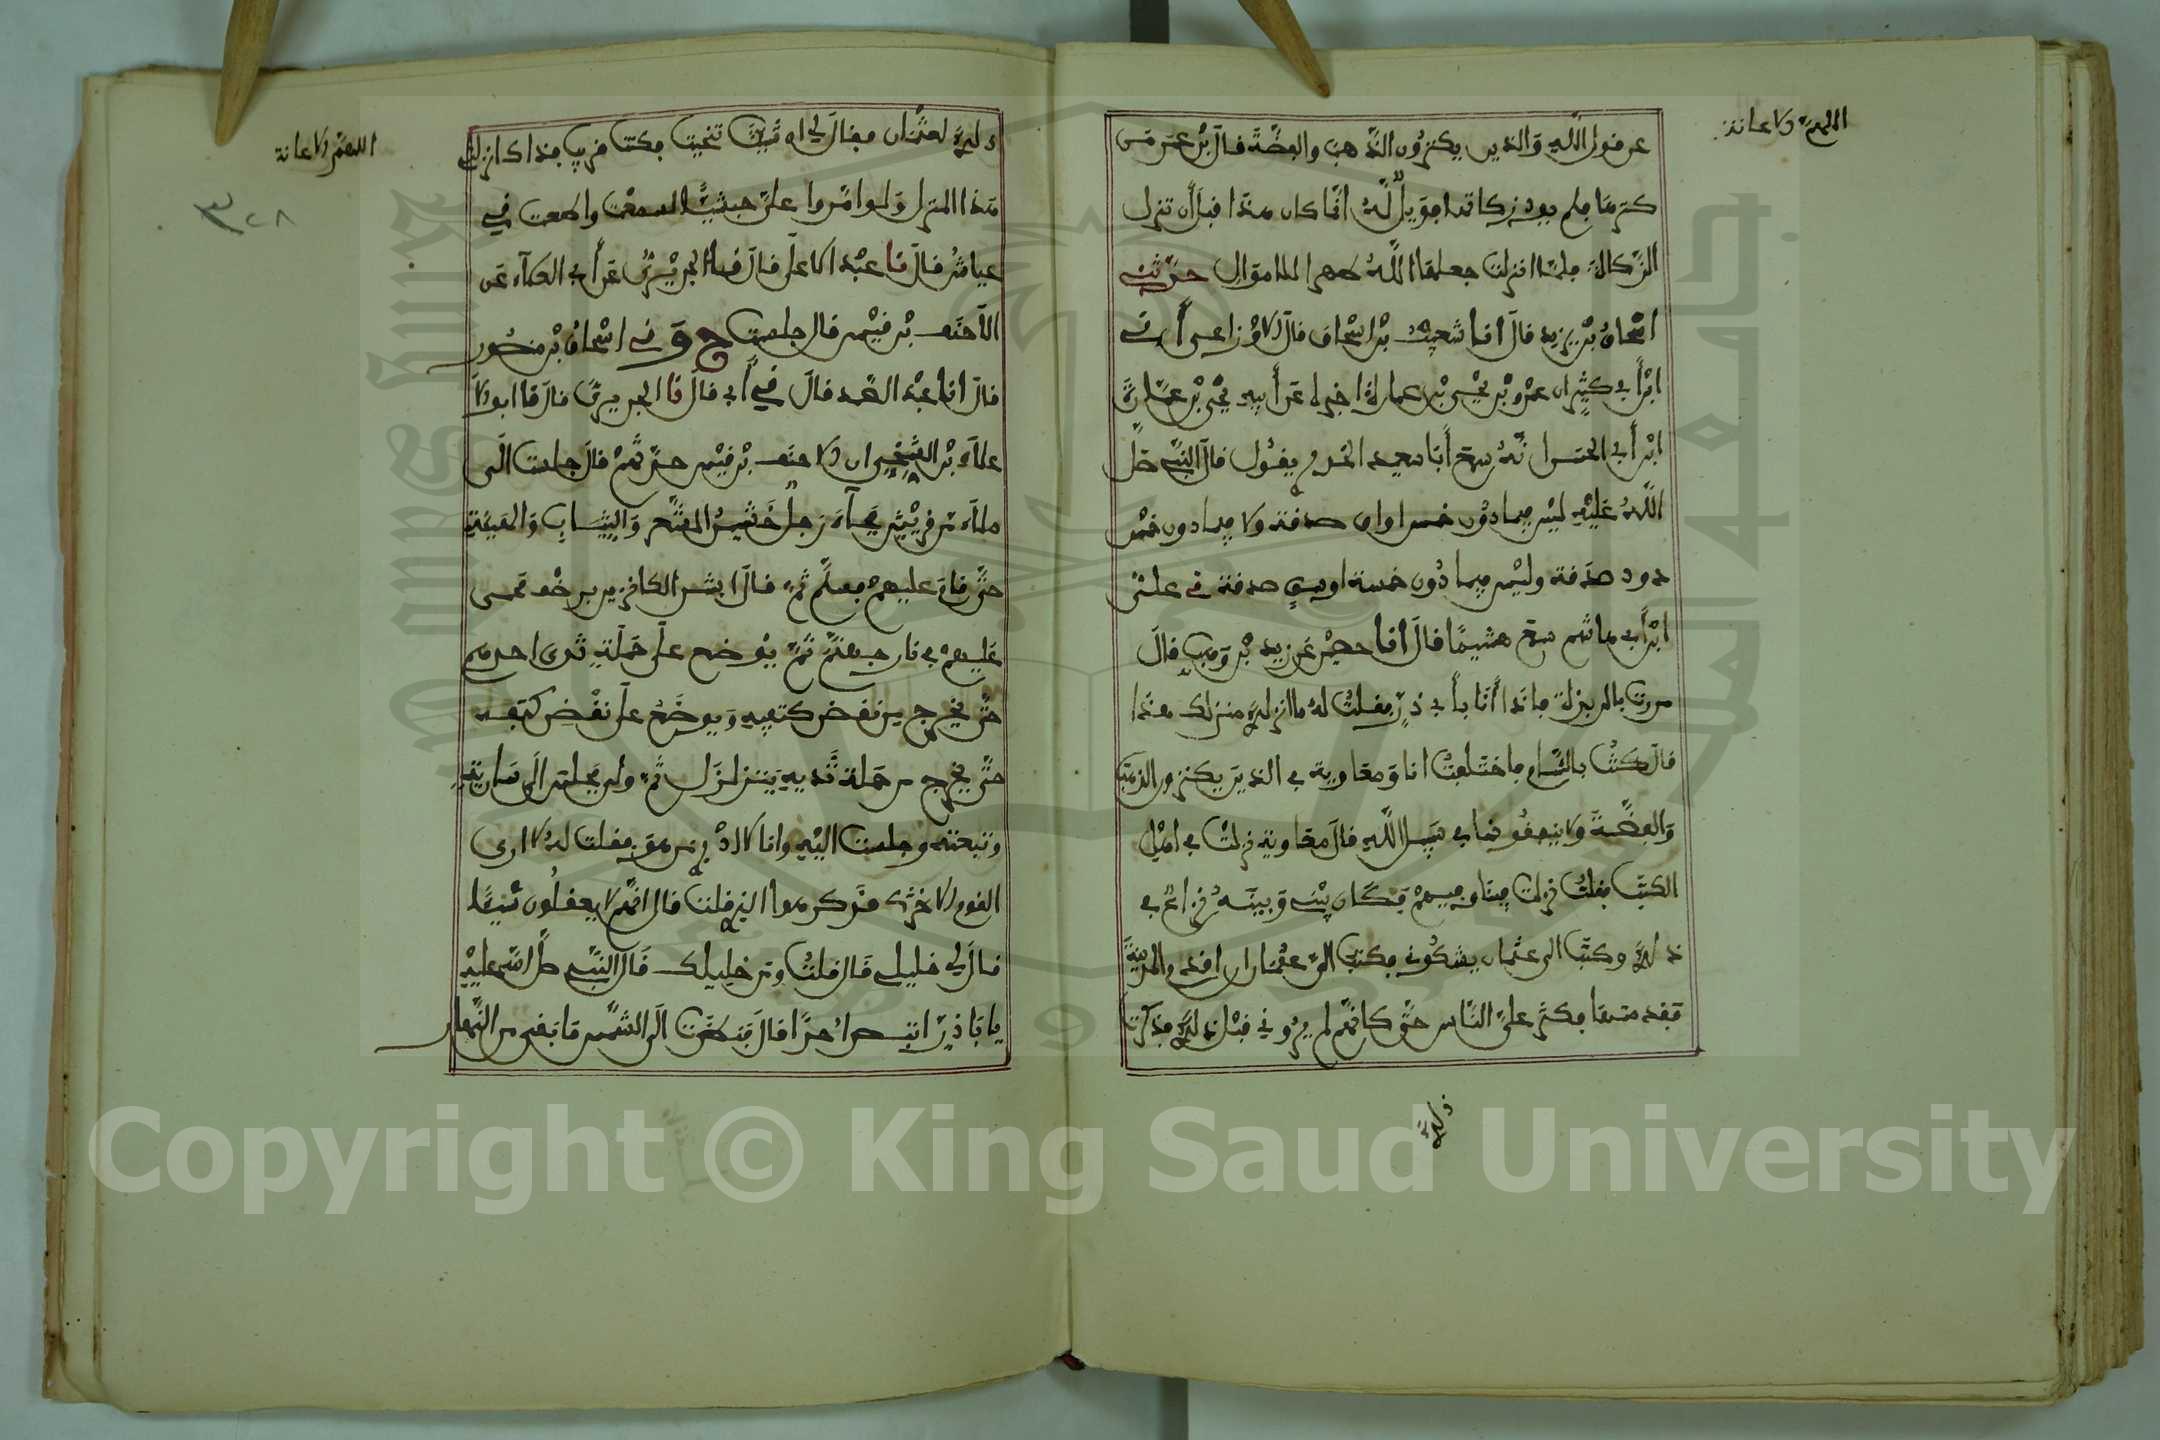 اللهم الاعانة
عن قول الله والذين يكنزون الذهب والفضة قال بن عمر من
كنزها فلم يود زكاتها فويل له انما كان هذا قبل أن تنزل
الزكاة فلما انزلت جعلها الله طهرا للاموال حدثني
اسحاق بن يزيد قال انا شعيب بن اسحاق قال الاوزاعي أ ني
ابن أبي كثير ان عمرو بن يحيى بن عمارة اخبره عن أبيه يحيى بن عمارة
ابن أبي الحسن انه سمع أبا سعيد الخدري يقول قال النبي صلى
الله عليه ليس فيما دون خمس اواق صدقة ولا فيما دون خمس
ذود صدقة وليس فيما دون خمسة اوسق صدقة في علي
ابن أبي هاشم سمع هشيما قال انا حصين عن زيد بن وهب قال
مررت بالربذة فاذا أنا بأبي ذر فقلت له ما انزلك منزلك هذا
قال كنت بالشام فاختلفت انا ومعاوية في الذين يكنزون الذهب
والفضة ولا ينفقونها في سبيل الله قال معاوية نزلت في اهل
الكتب فقلت نزلت فينا وفيهم فكان بيني وبينه نزاع في
ذلك وكتب الى عثمان يشكوني فكتب الي عثمان ان اقدم المدينة
فقدمتها فكثر علي الناس حتى كانهم لم يروني قبل ذلك فذكرت
ذلك
اللهم الاعانة
٣٢٨
ذلك لعثمان فقال لي ان شيت تنحيت فكنت قريبا فهذا الذي انزلني
هذا المنزل ولو امروا علي حبشيا لسمعت واطعت في
عياش قال نا عبد الاعلى قال نا الجريري عن أبي العلاء عن
الاحنف بن قيس قال جلست ح و ني اسحاق بن منصور
قال انا عبد الصمد قال ني أبي قال نا الجريري قال نا ابو الا
علاء بن الشخير ان الاحنف بن قيس حدثهم قال جلست الى
ملاء من قريش فجاء رجل خشن الشعر والثياب والهيئة
حتى قام عليهم فسلم ثم قال بشر الكانزين برضف يحمى
عليهم في نار جهنم ثم يوضع على حلمة ثدي احدهم
حتى يخرج من نغض كتفه ويوضع على نغض كتفه
حتى يخرج من حلمة ثديه يتزلزل ثم ولى فجلس الى سارية
وتبعته وجلست اليه وانا لا ادري من هو فقلت له لا ارى
القوم الا قد كرهوا الذي قلت قال انهم لا يعقلون شيئا
قال لي خليلي قال قلت ومن خليلك قال النبي صلى الله عليه
يا با ذر اتبصر احدا قال فنظرت الى الشمس ما بقي من النهار
Copyright © King Saud University